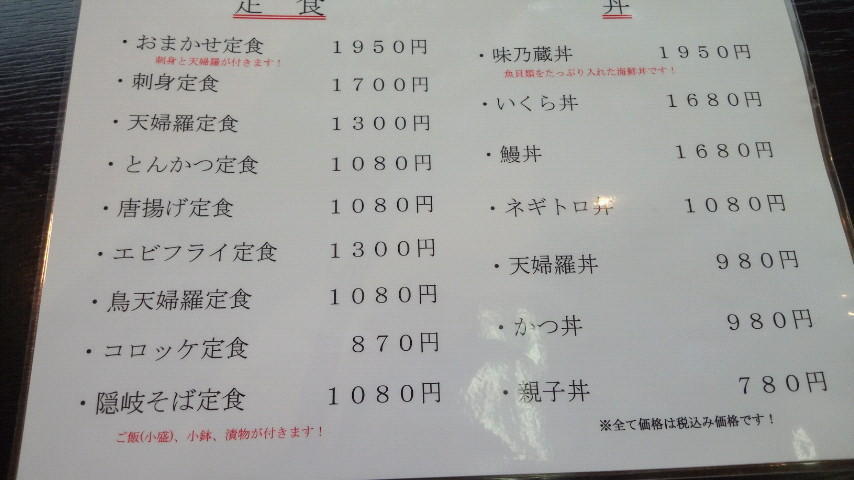 定 食
・おまかせ定食 1950円
刺身と天婦羅が付きます！
・刺身定食 1700円
・天婦羅定食 1300円
・とんかつ定食 1080円
・唐揚げ定食 1080円
・エビフライ定食 1300円
・鳥天婦羅定食 1080円
・コロッケ定食 870円
・隠岐そば定食 1080円
ご飯(小盛)、小鉢、漬物が付きます！
丼
・味乃蔵丼 1950円
魚貝類をたっぷり入れた海鮮丼です！
・いくら丼 1680円
・鰻丼 1680円
・ネギトロ丼 1080円
・天婦羅丼 980円
・かつ丼 980円
・親子丼 780円
※全て価格は税込み価格です！